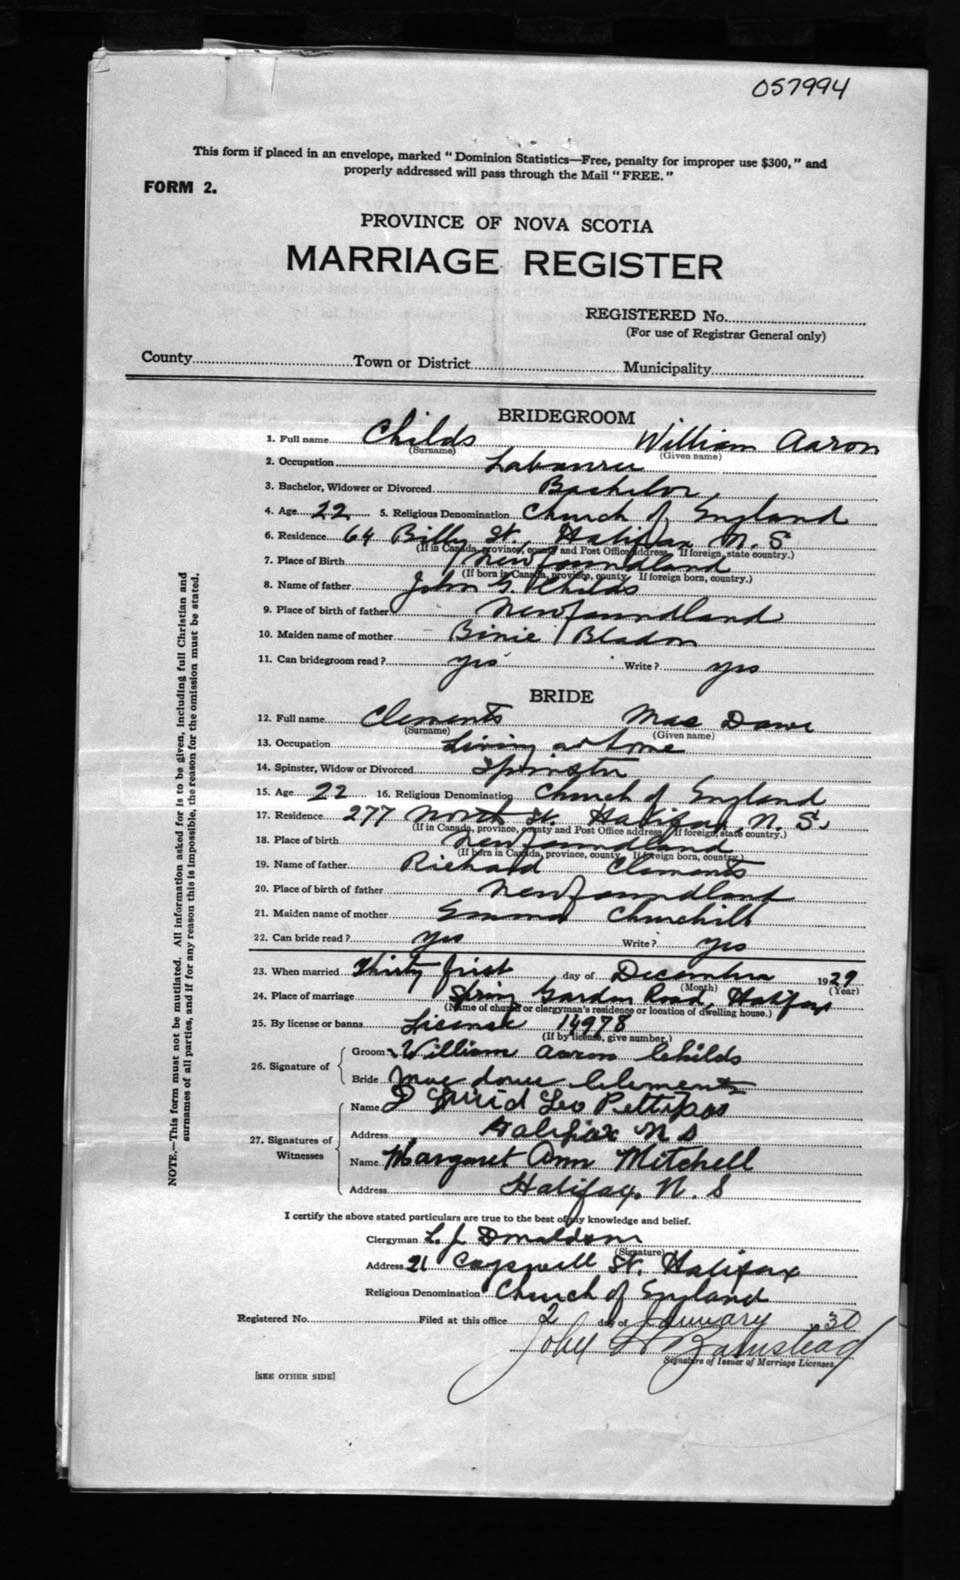 057994
This form if placed in an envelope, marked "Dominion Statistics—Free, penalty for improper use $300," and
properly addressed will pass through the Mail "FREE."
FORM 2.
PROVINCE OF NOVA SCOTIA
MARRIAGE REGISTER
REGISTERED No.
(For use of Registrar General only)
County Town or District Municipality
BRIDEGROOM
1. Full name Childs William Aaron
(Surname) (Given name)
2. Occupation Labourer
3. Bachelor, Widower or Divorced Bachelor
4. Age 22 5. Religious Denomination Church of England
6. Residence 64 Bilby St. Halifax N.S
(If in Canada, province, county and Post Office Address. If foreign, state country.)
7. Place of Birth Newfoundland
(If born in Canada, province, county. If foreign born, country.)
8. Name of father John G. Childs
9. Place of birth of father Newfoundland
10. Maiden name of mother Binie Bladon
11. Can bridegroom read? yes Write? yes
BRIDE
12. Full name Clements Mae Dawe
(Surname) (Given name)
13. Occupation Living at home
14. Spinster, Widow or Divorced Spinster
15. Age 22 16. Religious Denomination Church of England
17. Residence 277 North St. Halifax N.S.
(If in Canada, province, county and Post Office address. If foreign, state country.)
18. Place of birth Newfoundland
(If born in Canada, province, county. If foreign born, country.)
19. Name of father Richard Clements
20. Place of birth of father Newfoundland
21. Maiden name of mother Emma Churchill
22. Can bride read? yes Write? yes
23. When married Thirty first day of December 1929
(Month) (Year)
24. Place of marriage Spring Garden Road, Halifax
(Name of church or clergyman's residence or location of dwelling house.)
25. By license or banns License 14978
(If by license, give number.)
26. Signature of Groom William Aaron Childs
Bride Mae Dawe Clements
27. Signatures of Witnesses Name Leo Pettipas
Address Halifax N S
Name Margaret Ann Mitchell
Address Halifax, N. S
I certify the above stated particulars are true to the best of my knowledge and belief.
Clergyman L. J. Donaldson
(Signature)
Address 21 Cogswell St. Halifax
Religious Denomination Church of England
Registered No. Filed at this office 2 day of January 1930
John Barnstead
Signature of Issuer of Marriage Licenses
[SEE OTHER SIDE]
NOTE.—This form must not be mutilated. All information asked for is to be given, including full Christian and
surnames of all parties, and if for any reason this is impossible, the reason for the omission must be stated.